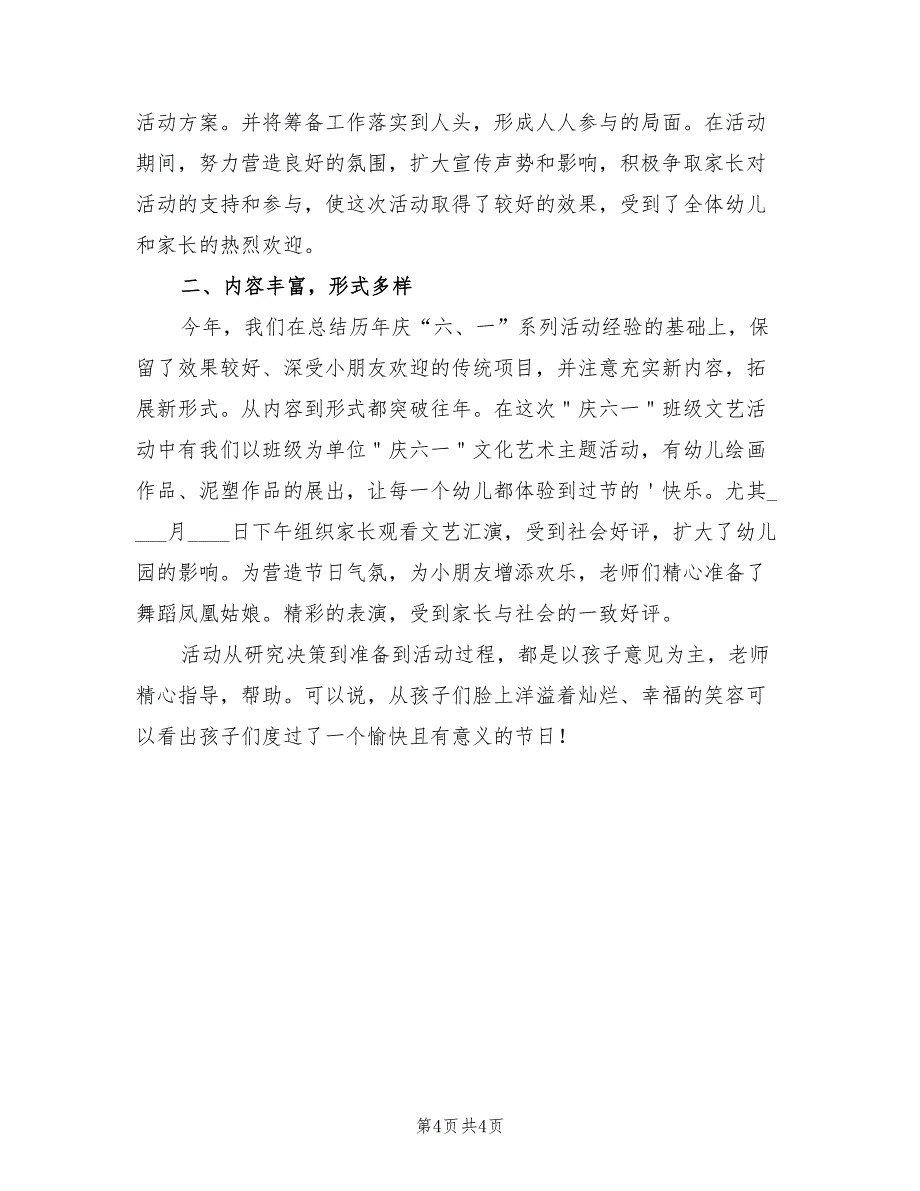 活动方案。并将筹备工作落实到人头，形成人人参与的局面。在活动
期间，努力营造良好的氛围，扩大宣传声势和影响，积极争取家长对
活动的支持和参与，使这次活动取得了较好的效果，受到了全体幼儿
和家长的热烈欢迎。
二、内容丰富，形式多样
今年，我们在总结历年庆“六、一”系列活动经验的基础上，保
留了效果较好、深受小朋友欢迎的传统项目，并注意充实新内容，拓
展新形式。从内容到形式都突破往年。在这次＂庆六一＂班级文艺活
动中有我们以班级为单位＂庆六一＂文化艺术主题活动，有幼儿绘画
作品、泥塑作品的展出，让每一个幼儿都体验到过节的＇快乐。尤其_
___月____日下午组织家长观看文艺汇演，受到社会好评，扩大了幼儿
园的影响。为营造节日气氛，为小朋友增添欢乐，老师们精心准备了
舞蹈凤凰姑娘。精彩的表演，受到家长与社会的一致好评。
活动从研究决策到准备到活动过程，都是以孩子意见为主，老师
精心指导，帮助。可以说，从孩子们脸上洋溢着灿烂、幸福的笑容可
以看出孩子们度过了一个愉快且有意义的节日！
第4页 共4页